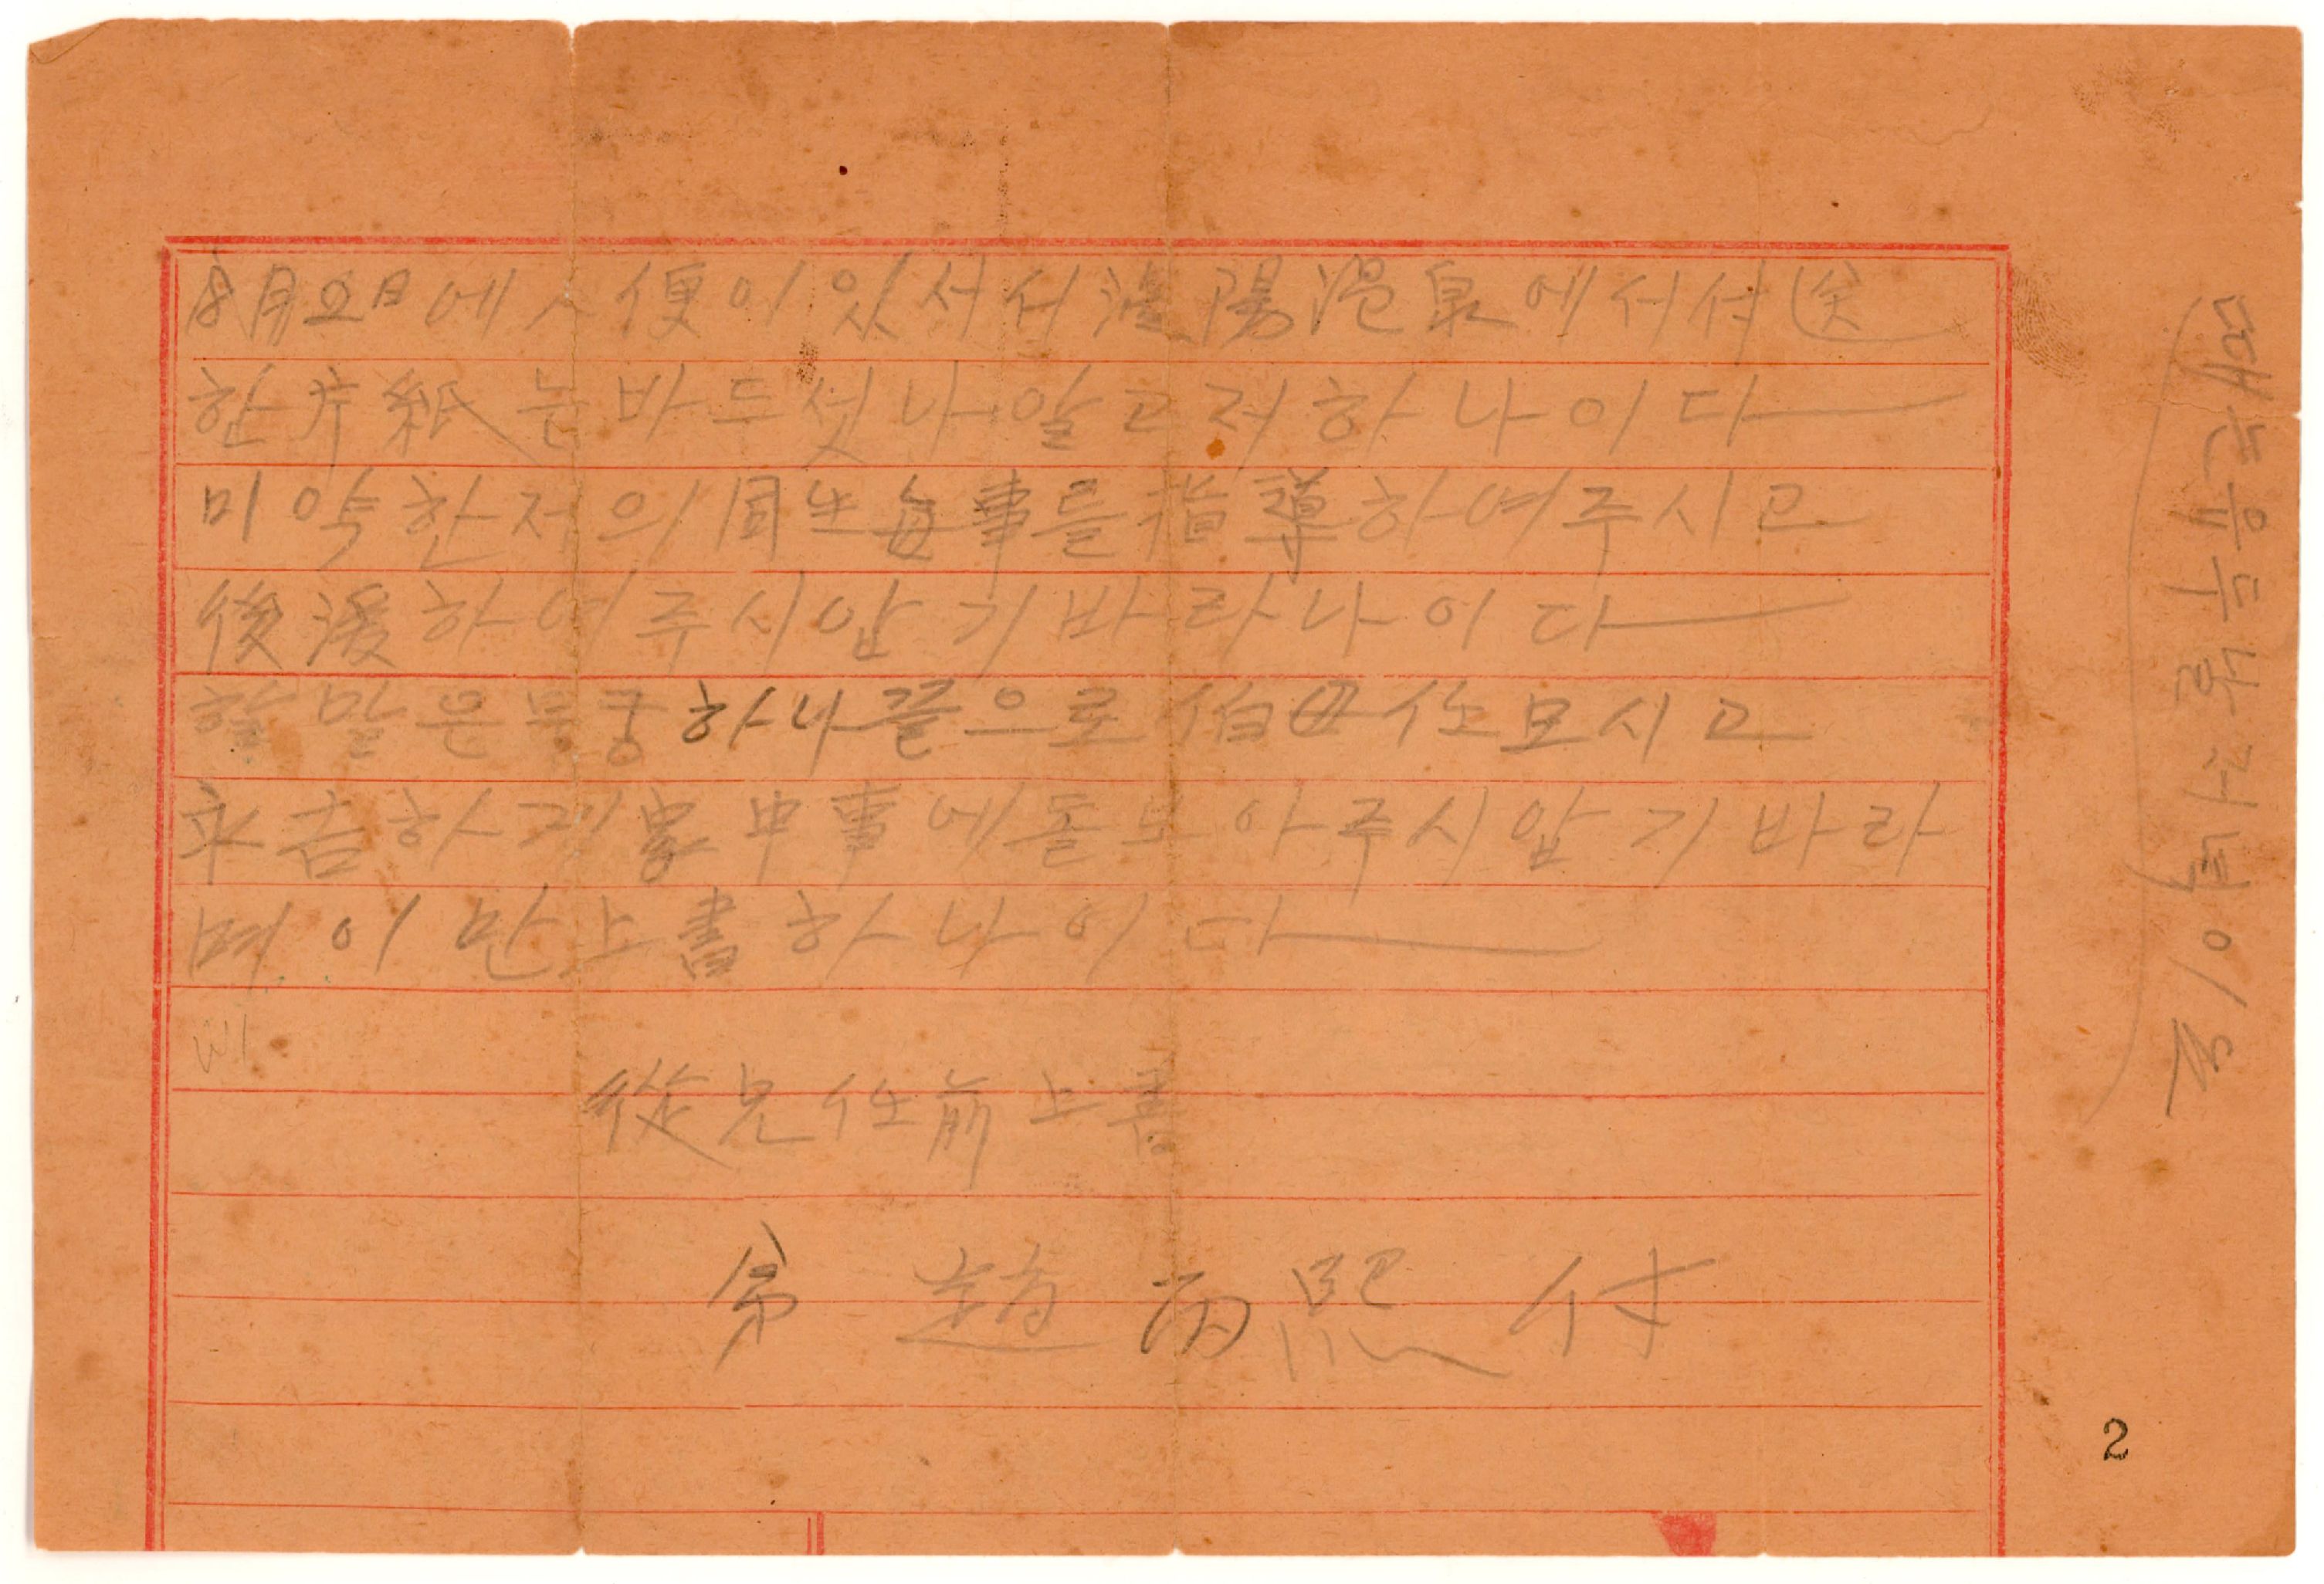 8月2日에人便이있서서溫陽溫泉에서付送
한片紙는바드섯나알고저하나이다
미약한저의同生每事를指導하여주시고
後援하여주시압기바라나이다
할말은무궁하나끝으로伯母任모시고
安吉하게家中事에돌보아주시압기바라
며이만上書하나이다
從兄任前上書
弟 趙丙熙 付
2